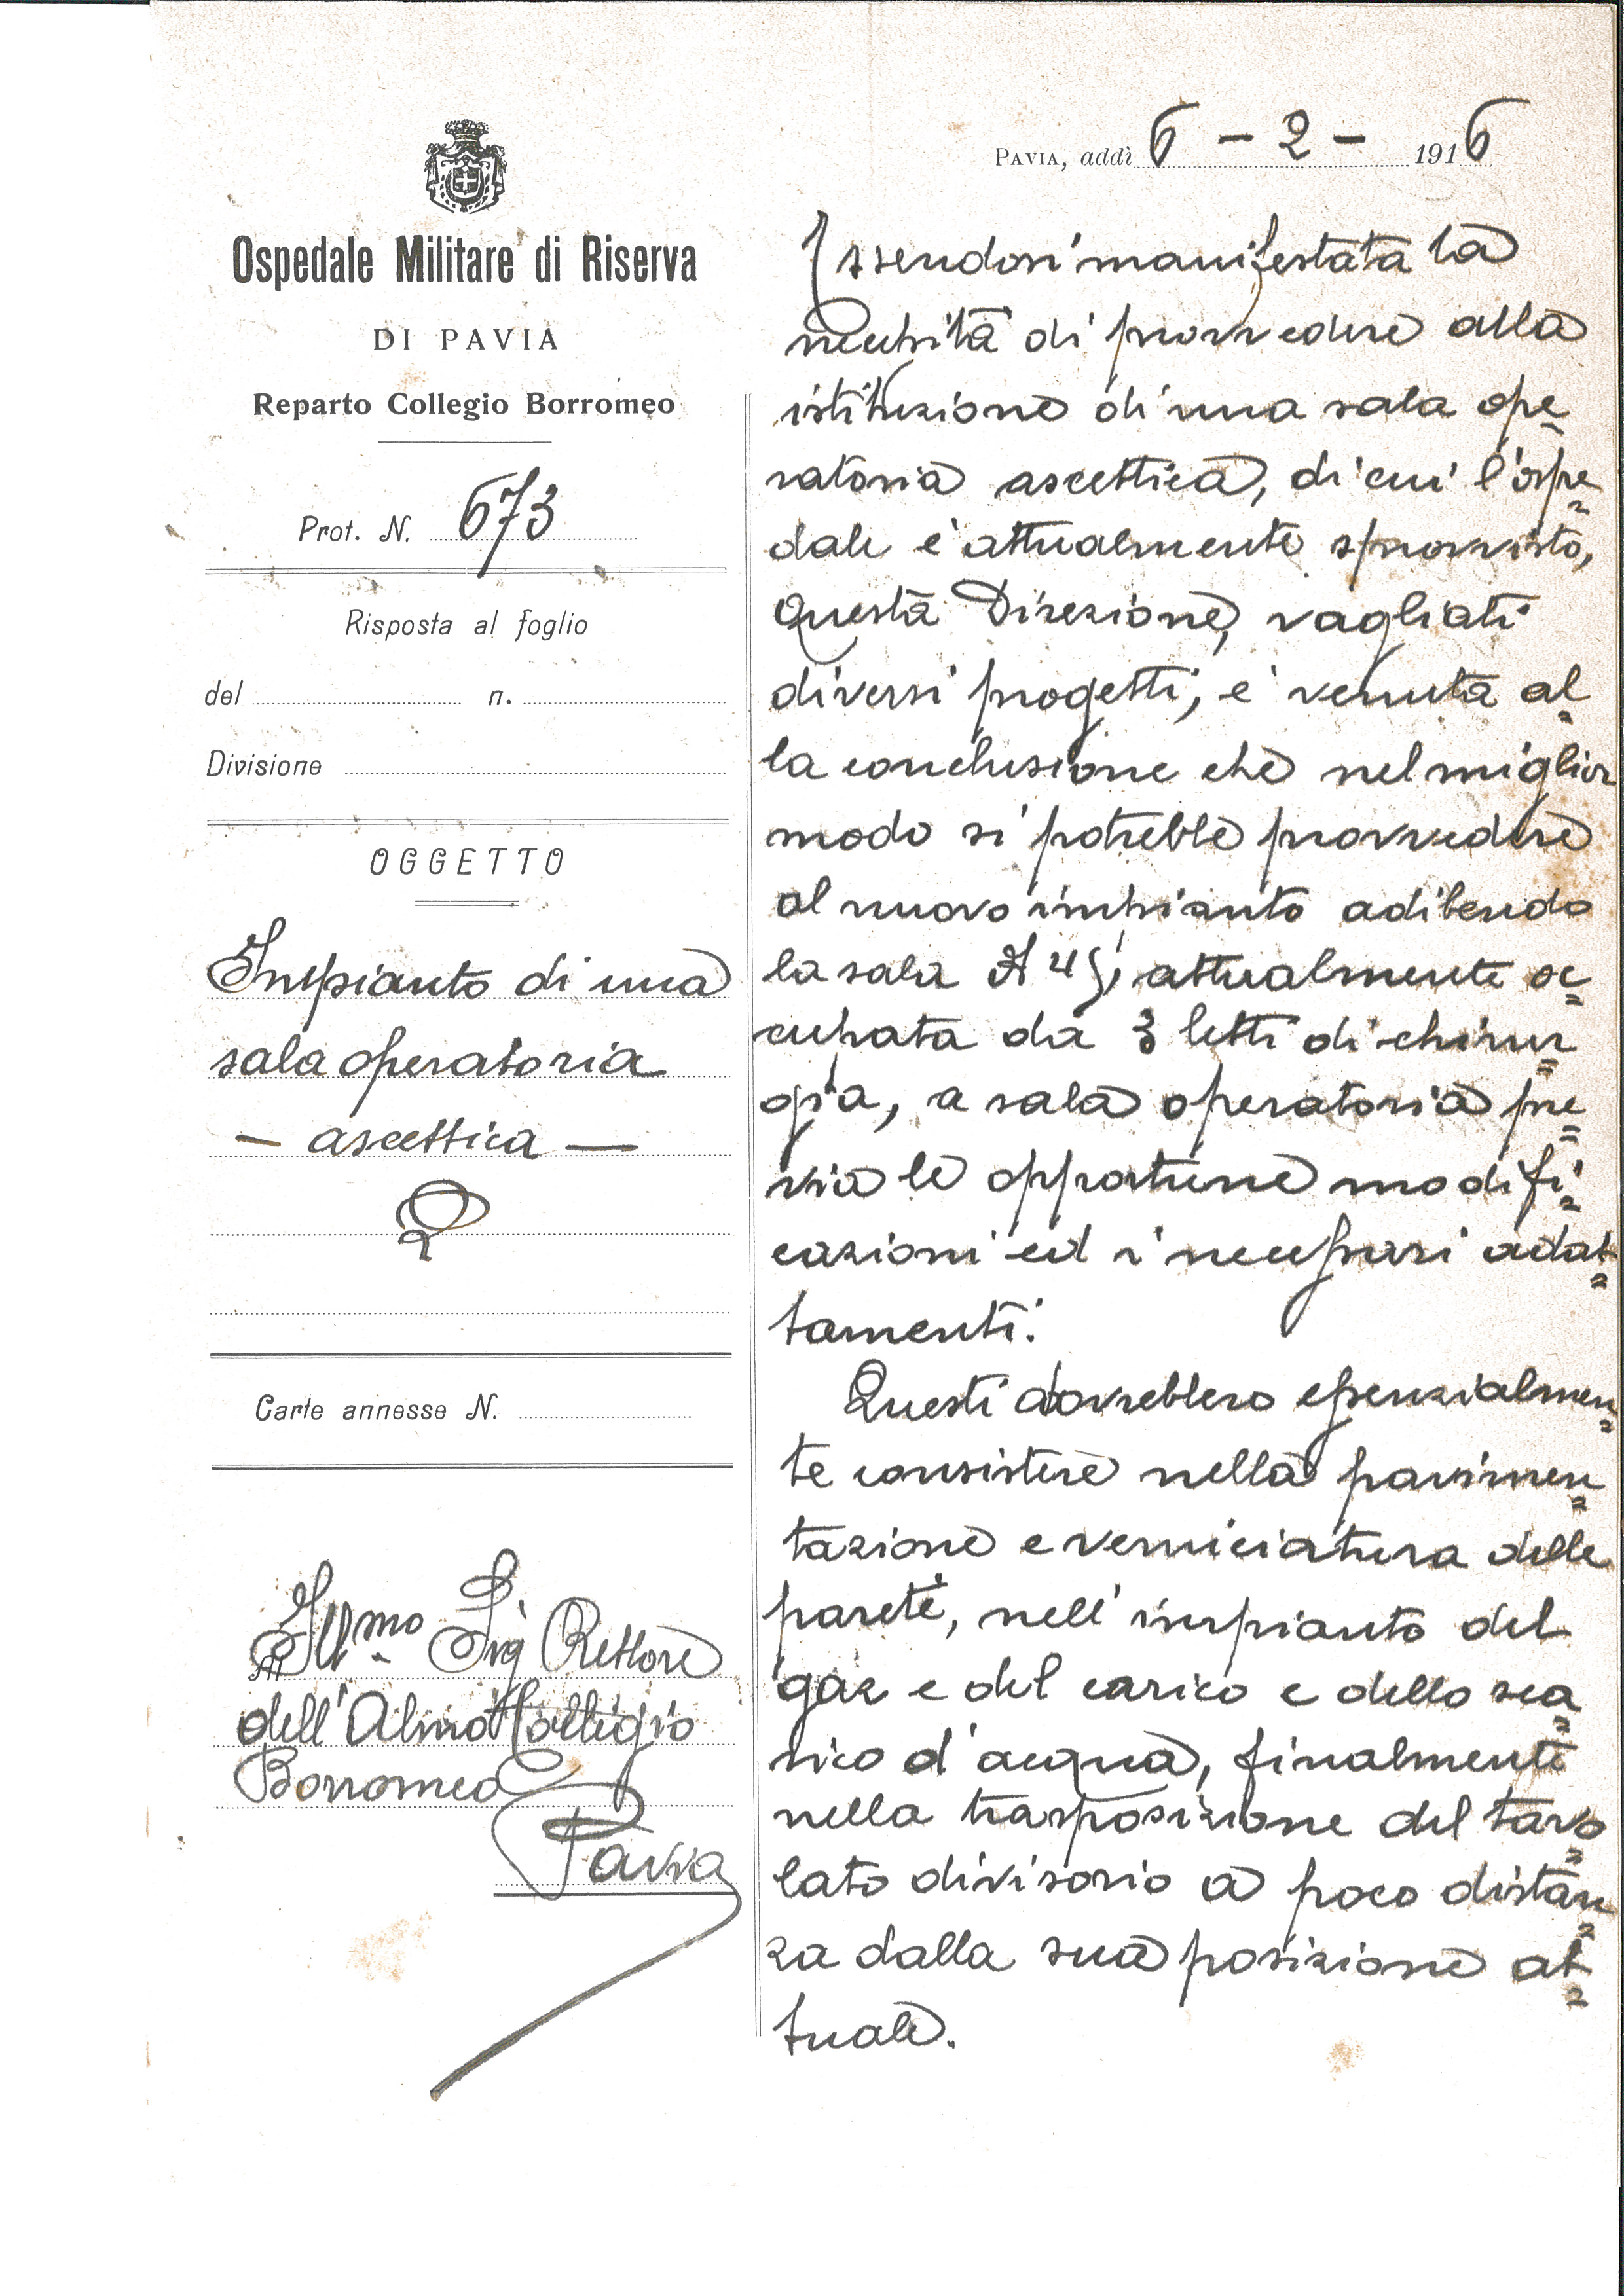 Ospedale Militare di Riserva
DI PAVIA
Reparto Collegio Borromeo
Prot. N. 673
Risposta al foglio
del n.
Divisione
OGGETTO
Impianto di una
sala operatoria
— ascettica —
Carte annesse N.
Ill.mo Sig Rettore
dell'Almo Collegio
Borromeo
Pavia
PAVIA, addì 6 - 2 - 1916
Essendosi manifestata la
necessità di provvedere alla
istituzione di una sala ope=
ratoria ascettica, di cui l'ospe=
dale è attualmente sprovvisto,
questa Direzione, vagliati
diversi progetti, è venuta al=
la conclusione che nel miglior
modo si potrebbe provvedere
al nuovo impianto adibendo
la sala attualmente oc=
cupata da 3 letti di chirur=
gia, a sala operatoria pre=
via le opportune modifi=
cazioni ed i necessari adat=
tamenti.
Questi dovrebbero essenzialmen=
te consistere nella pavimen=
tazione e verniciatura delle
pareti, nell'impianto del
gaz e del carico e dello sca=
rico d'acqua, finalmente
nella trasposizione del tavo=
lato divisorio a poco distan=
za dalla sua posizione at=
tuale.